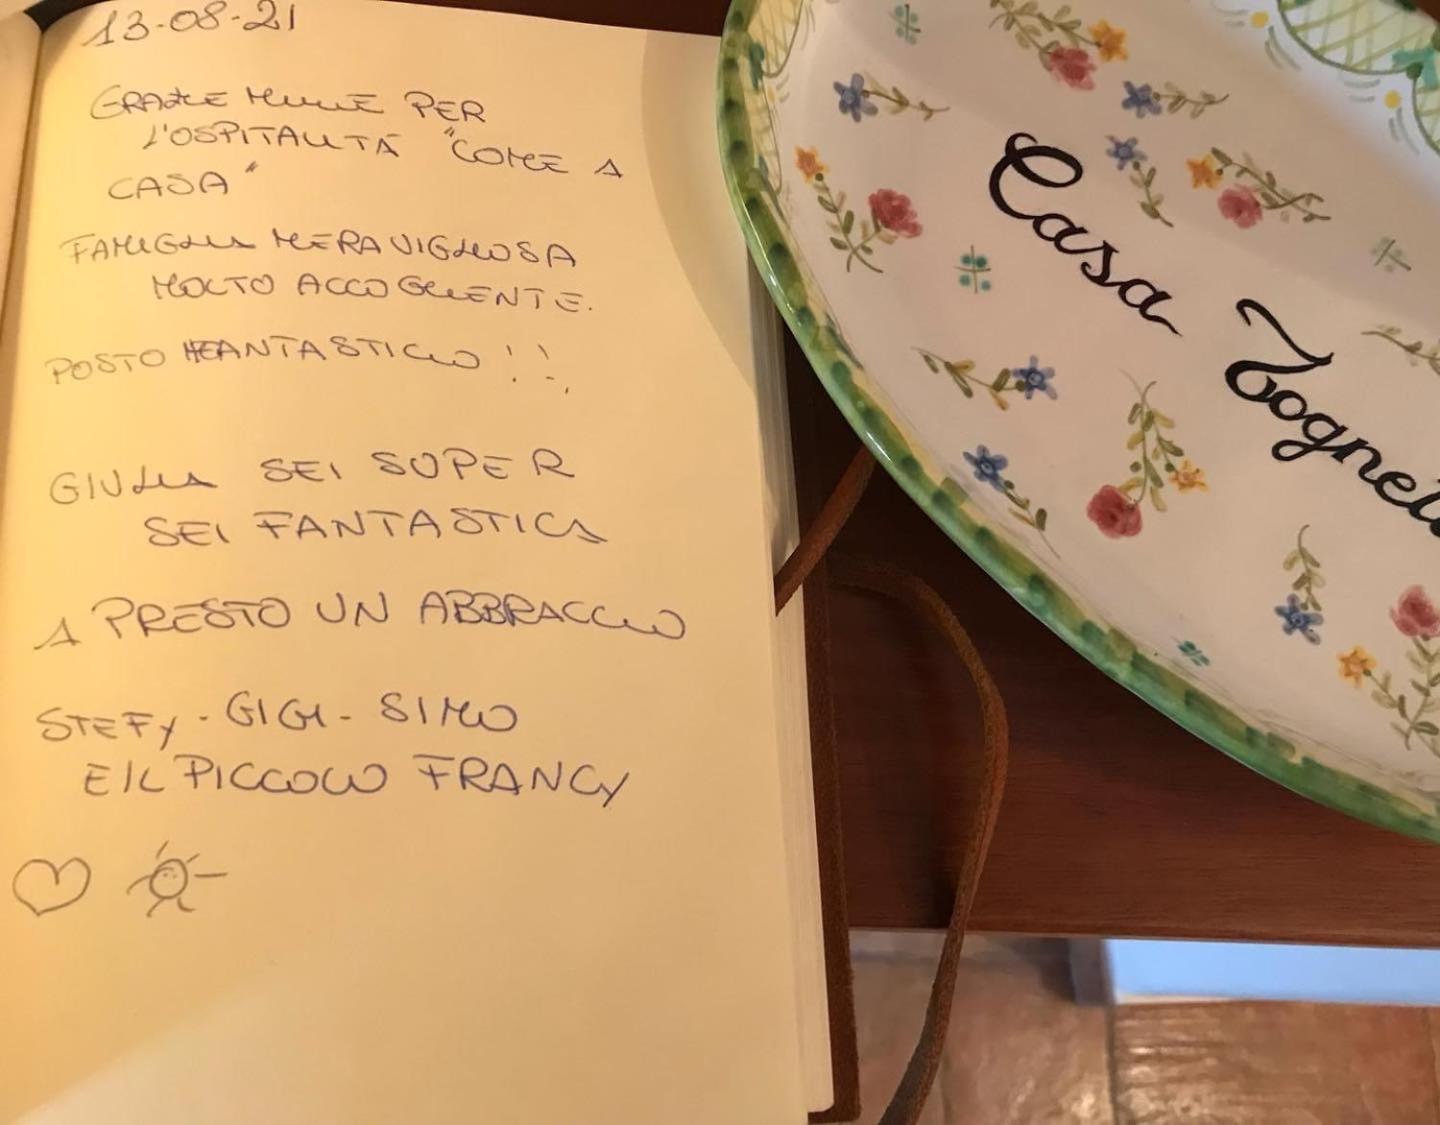 13-08-21
GRAZIE MILLE PER
L'OSPITALITÁ "COME A
CASA"
FAMIGLIA MERAVIGLIOSA
MOLTO ACCOGLIENTE.
POSTO FANTASTICO !!
GIULIA SEI SUPER
SEI FANTASTICA
A PRESTO UN ABBRACCIO
STEFY - GIGI - SIMO
E IL PICCOLO FRANCY
Casa